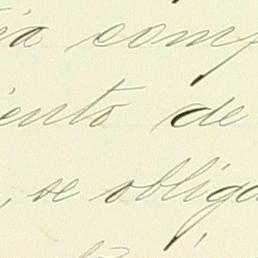 ia comp
iento de
, se obliga